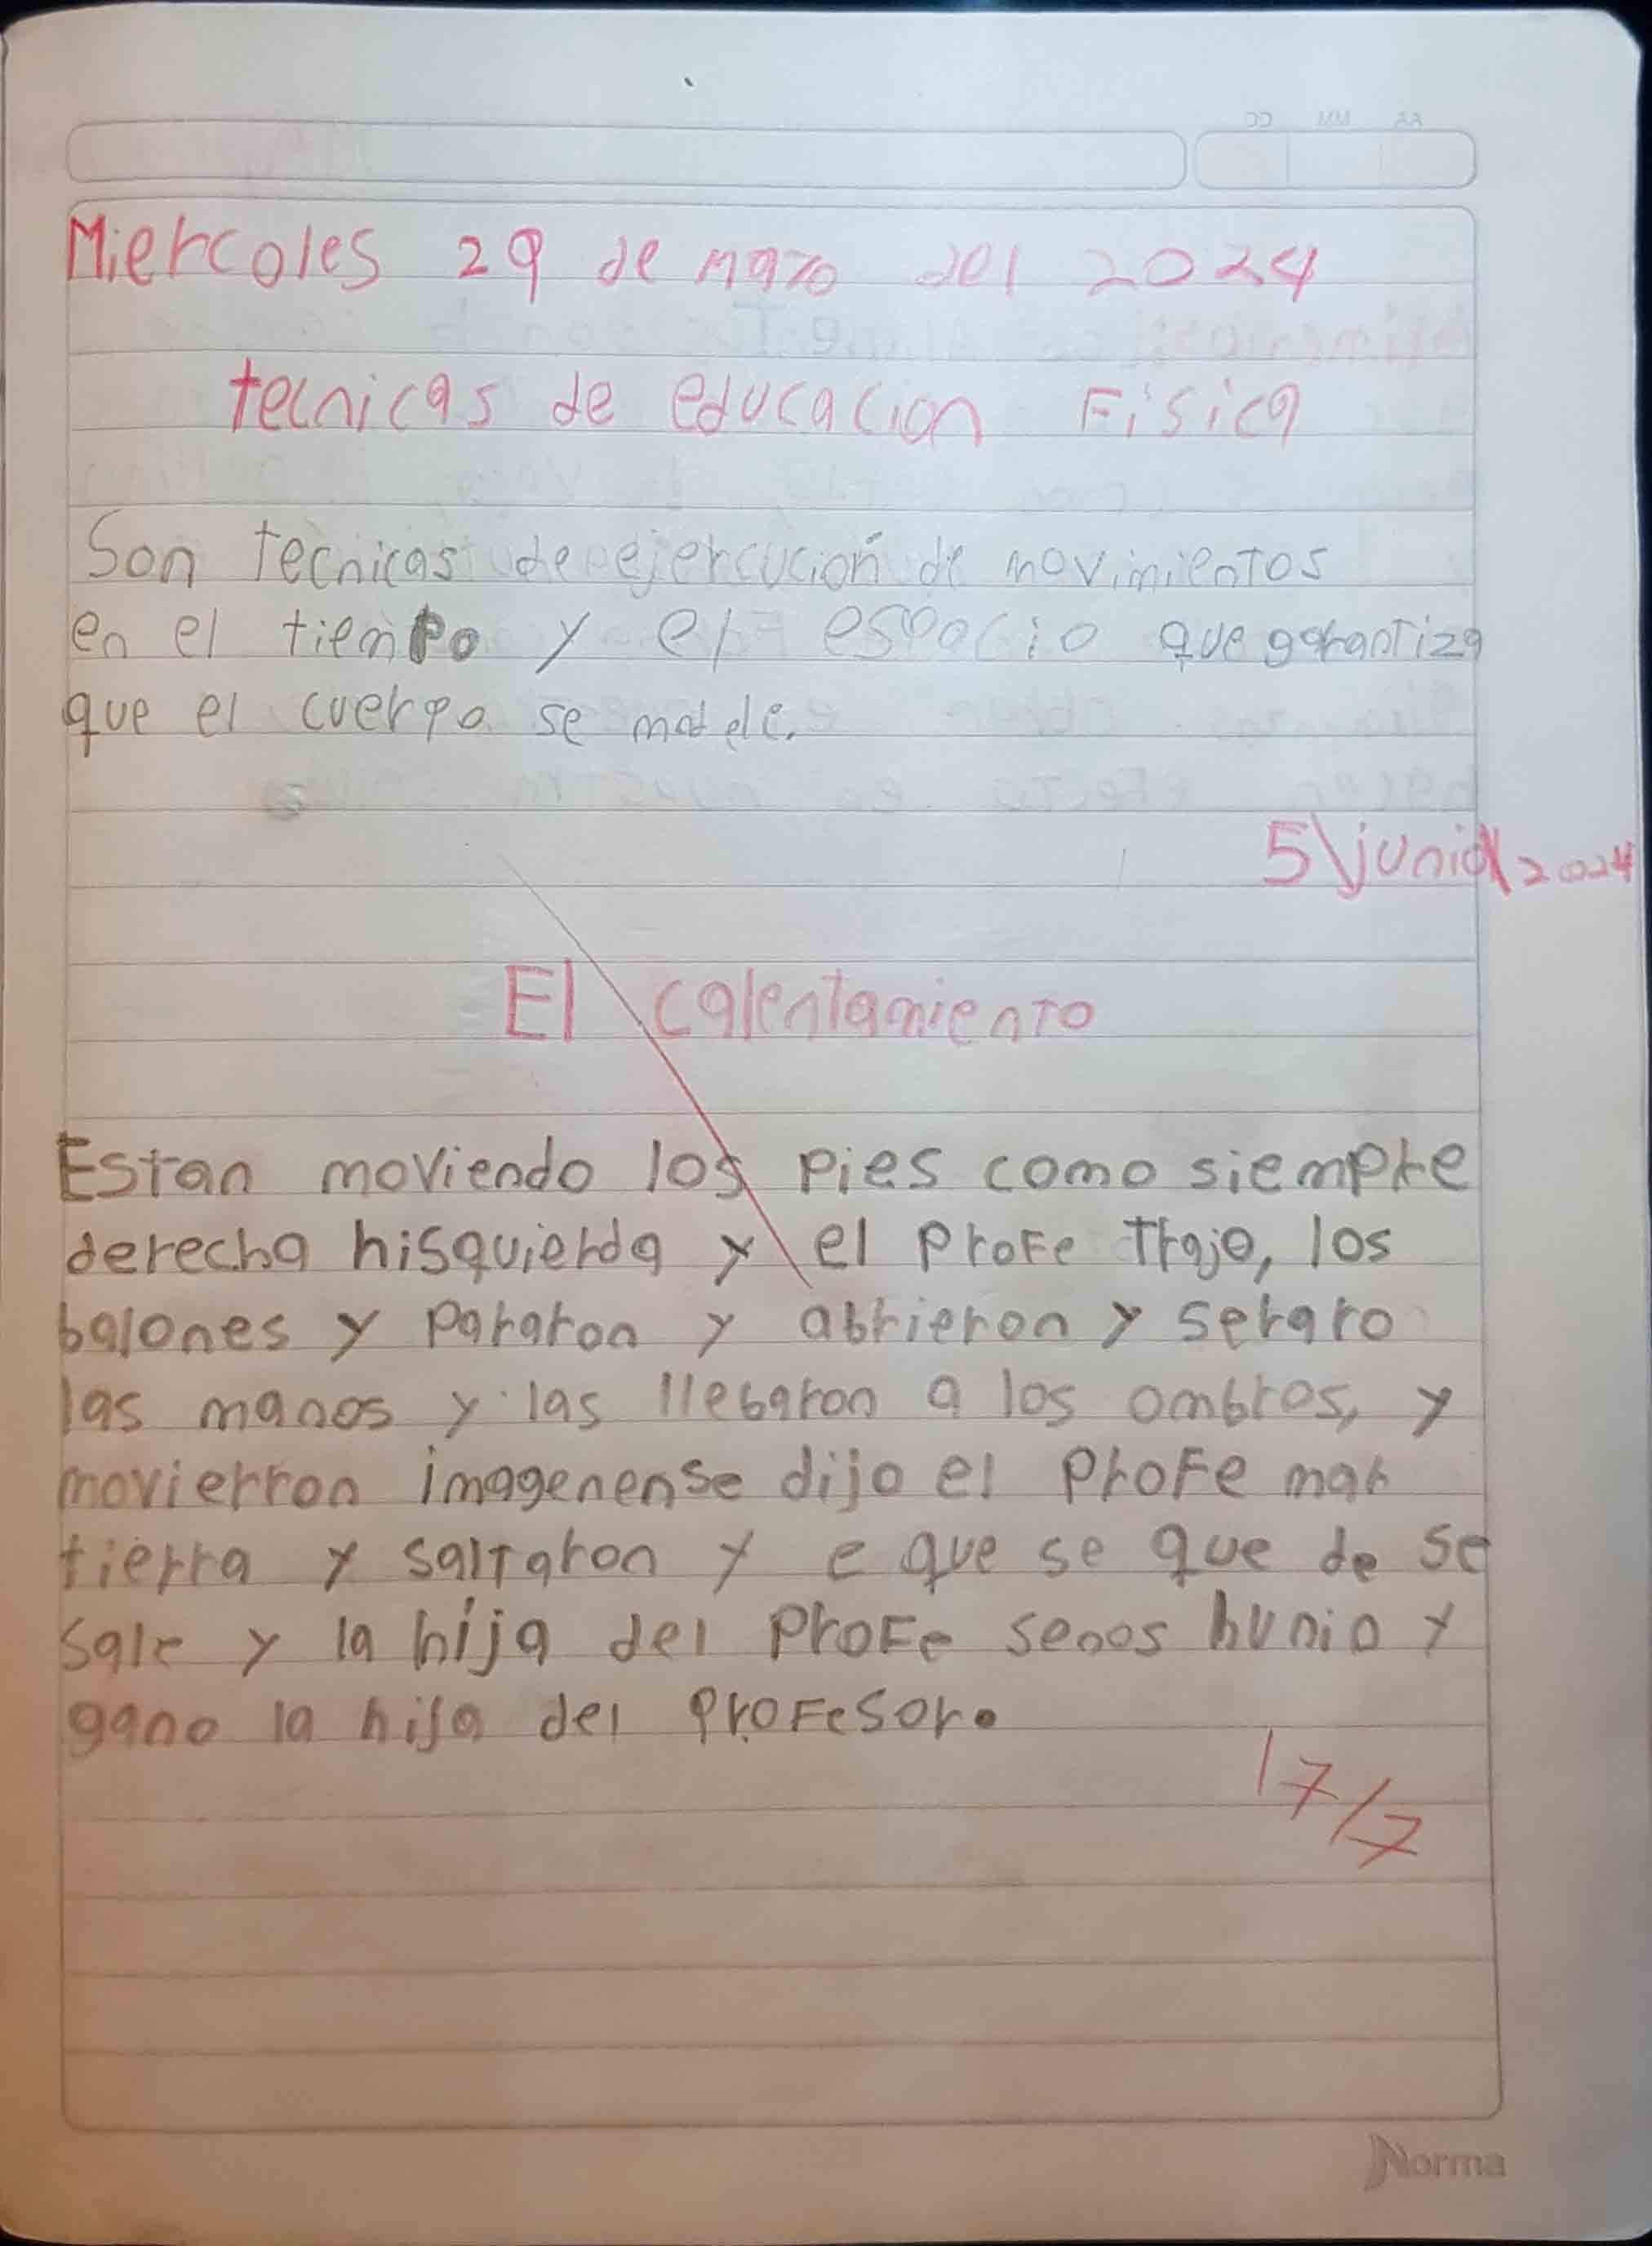 Miercoles 29 de mazo del 2024
tecnicas de educacion Fisica
Son tecnicas de ejercución de movimientos
en el tiempo y el espacio que garantiza
que el cuerpo se modele.
5\junio\2024
El calentamiento
Estan moviendo los pies como siempre
derecha hisquierda y el profe Trajo, los
balones y pararon y abrieron y seraro
las manos y las llebaron a los ombros, y
movierron imagenense dijo el profe mar
tierra y saltaron y e que se que de se
sale y la hija del profe senos hunio y
gano la hija del profesor.
17/7
Norma